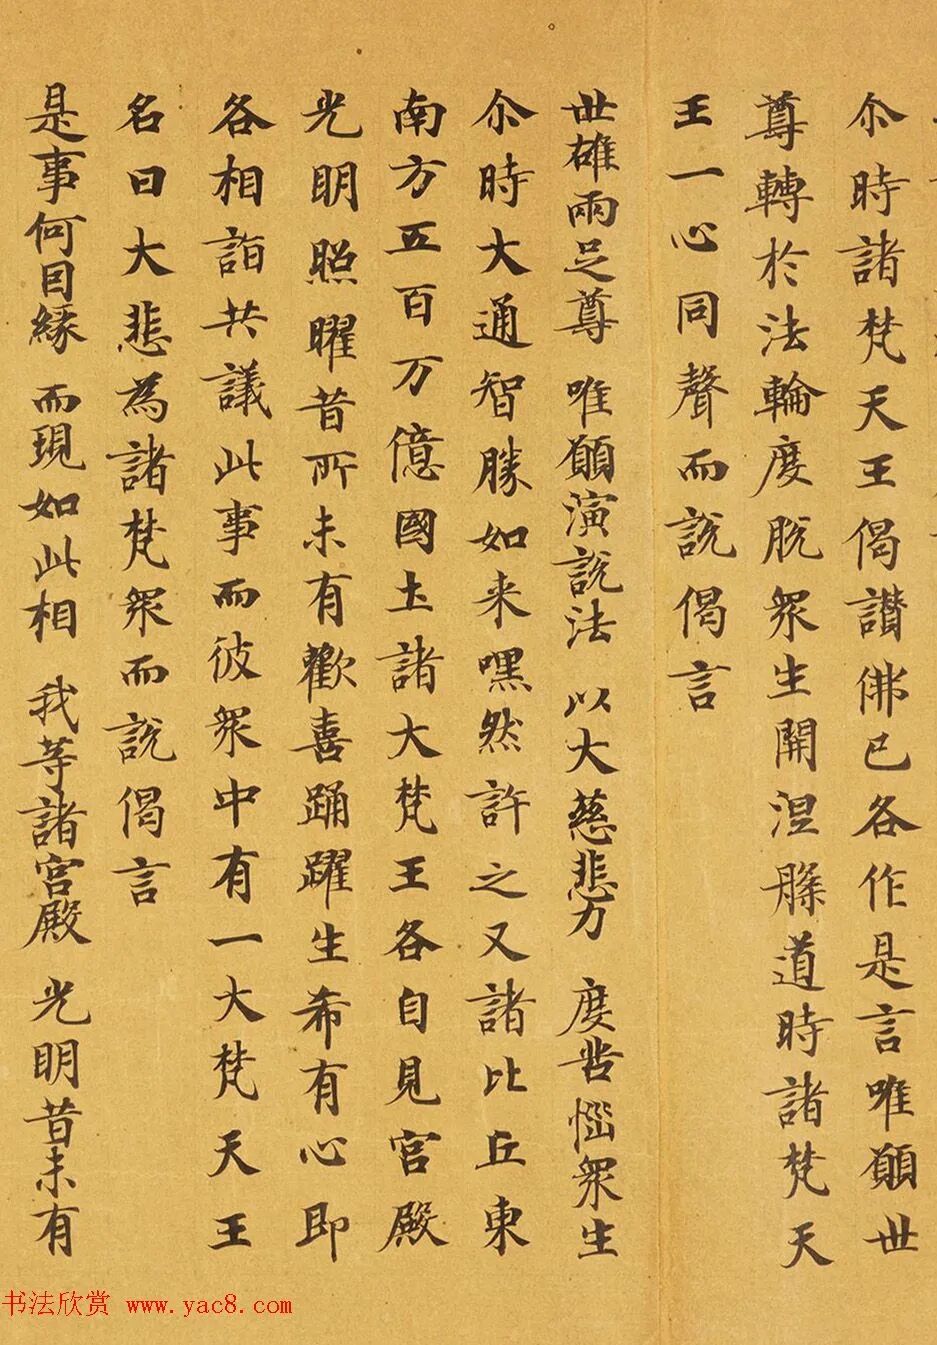 尒時諸梵天王偈讃佛已各作是言唯願世
尊轉於法輪度脫衆生開涅槃道時諸梵天
王一心同聲而說偈言
世雄兩足尊 唯願演說法 以大慈悲力 度苦惱衆生
尒時大通智勝如来嘿然許之又諸比丘東
南方五百万億國土諸大梵王各自見宫殿
光明照曜昔所未有歡喜踊躍生希有心即
各相詣共議此事而彼衆中有一大梵天王
名曰大悲為諸梵衆而說偈言
是事何因縁 而現如此相 我等諸宫殿 光明昔未有
书法欣赏 www.yac8.com